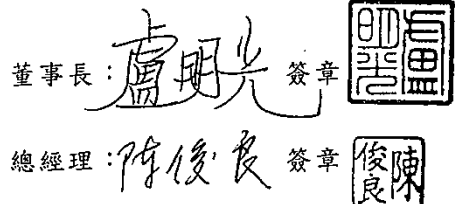 董事長：盧明光 簽章 盧明光
總經理：陳俊良 簽章 陳俊良